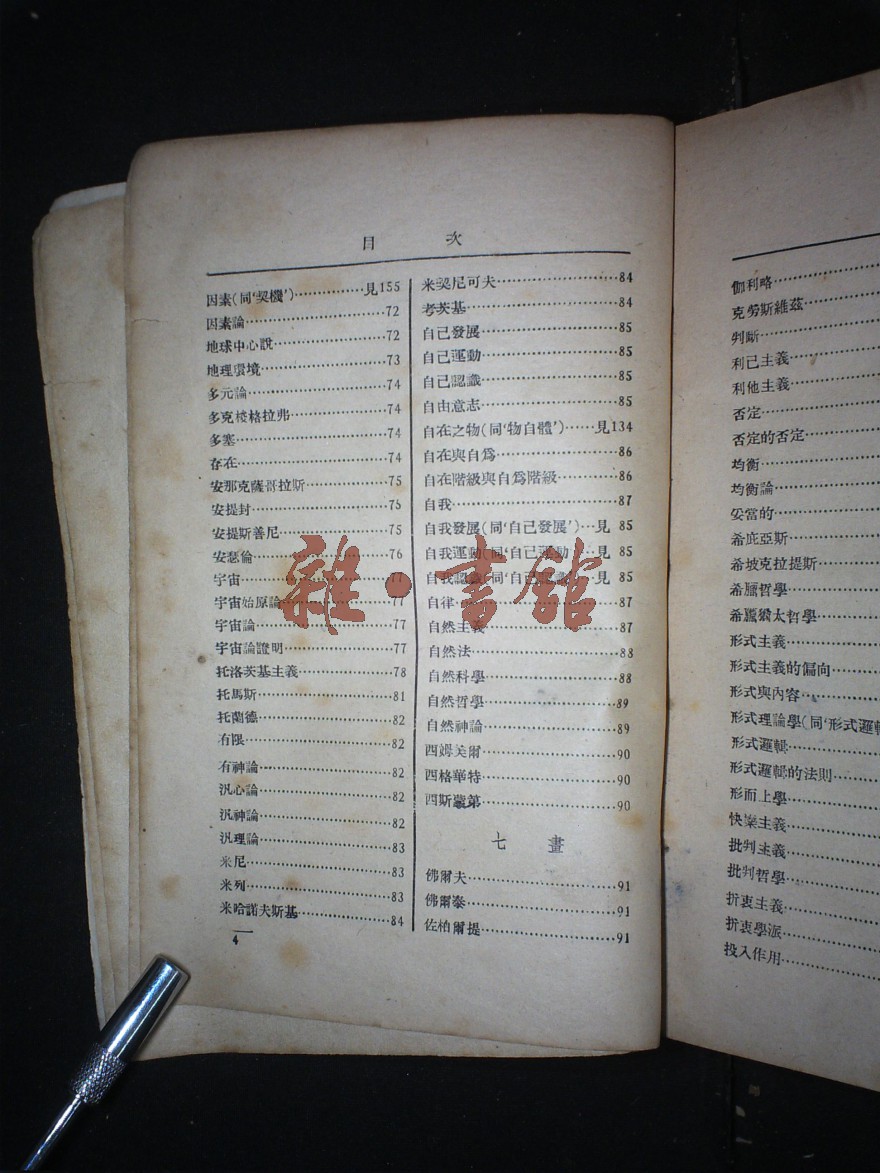 目　次
因素(同‘契機’)……………見155
因素論……………72
地球中心說……………72
地理環境……………73
多元論……………74
多克梭格拉弗……………74
多塞……………74
存在……………74
安那克薩哥拉斯……………75
安提封……………75
安提斯善尼……………75
安瑟倫……………76
宇宙……………77
宇宙始原論……………77
宇宙論……………77
宇宙論證明……………77
托洛茨基主義……………78
托馬斯……………81
托蘭德……………82
有限……………82
有神論……………82
汎心論……………82
汎神論……………82
汎理論……………83
米尼……………83
米列……………83
米哈諾夫斯基……………84
4
米契尼可夫……………84
考茨基……………84
自己發展……………85
自己運動……………85
自己認識……………85
自由意志……………85
自在之物(同‘物自體’)……見134
自在與自爲……………86
自在階級與自爲階級……………86
自我……………87
自我發展(同‘自己發展’)…見 85
自我運動(同‘自己運動’)…見 85
自我認識(同‘自己認識’)…見 85
自律……………87
自然主義……………87
自然法……………88
自然科學……………88
自然哲學……………89
自然神論……………89
西姆美爾……………90
西格華特……………90
西斯蒙第……………90
七　畫
佛爾夫……………91
佛爾泰……………91
佐柏爾提……………91
伽利略……………
克勞斯維茲……………
判斷……………
利己主義……………
利他主義……………
否定……………
否定的否定……………
均衡……………
均衡論……………
妥當的……………
希庇亞斯……………
希坡克拉提斯……………
希臘哲學……………
希臘猶太哲學……………
形式主義……………
形式主義的偏向……………
形式與內容……………
形式理論學(同‘形式邏輯
形式邏輯……………
形式邏輯的法則……………
形而上學……………
快樂主義……………
批判主義……………
批判哲學……………
折衷主義……………
折衷學派……………
投入作用……………
雜·書館